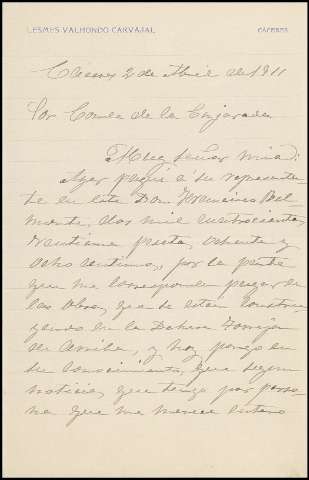 LESMES VALHONDO CARVAJAL CÁCERES
Cáceres 2 de Abril de 1911
Sor Conde de la
Muy Señor mio:
Ayer pagué a su representan-
te en esta Don Francisco Bel-
monte, dos mil cuatrocientas
treinta y una pesetas, ochenta y
ocho centimos, por la parte
que me corresponde pagar de
las obras, que se estan constru-
yendo en la Dehesa
de Arriba, y hoy pongo en
su conocimiento, que segun
noticias, que tengo por perso-
na que me merece entero